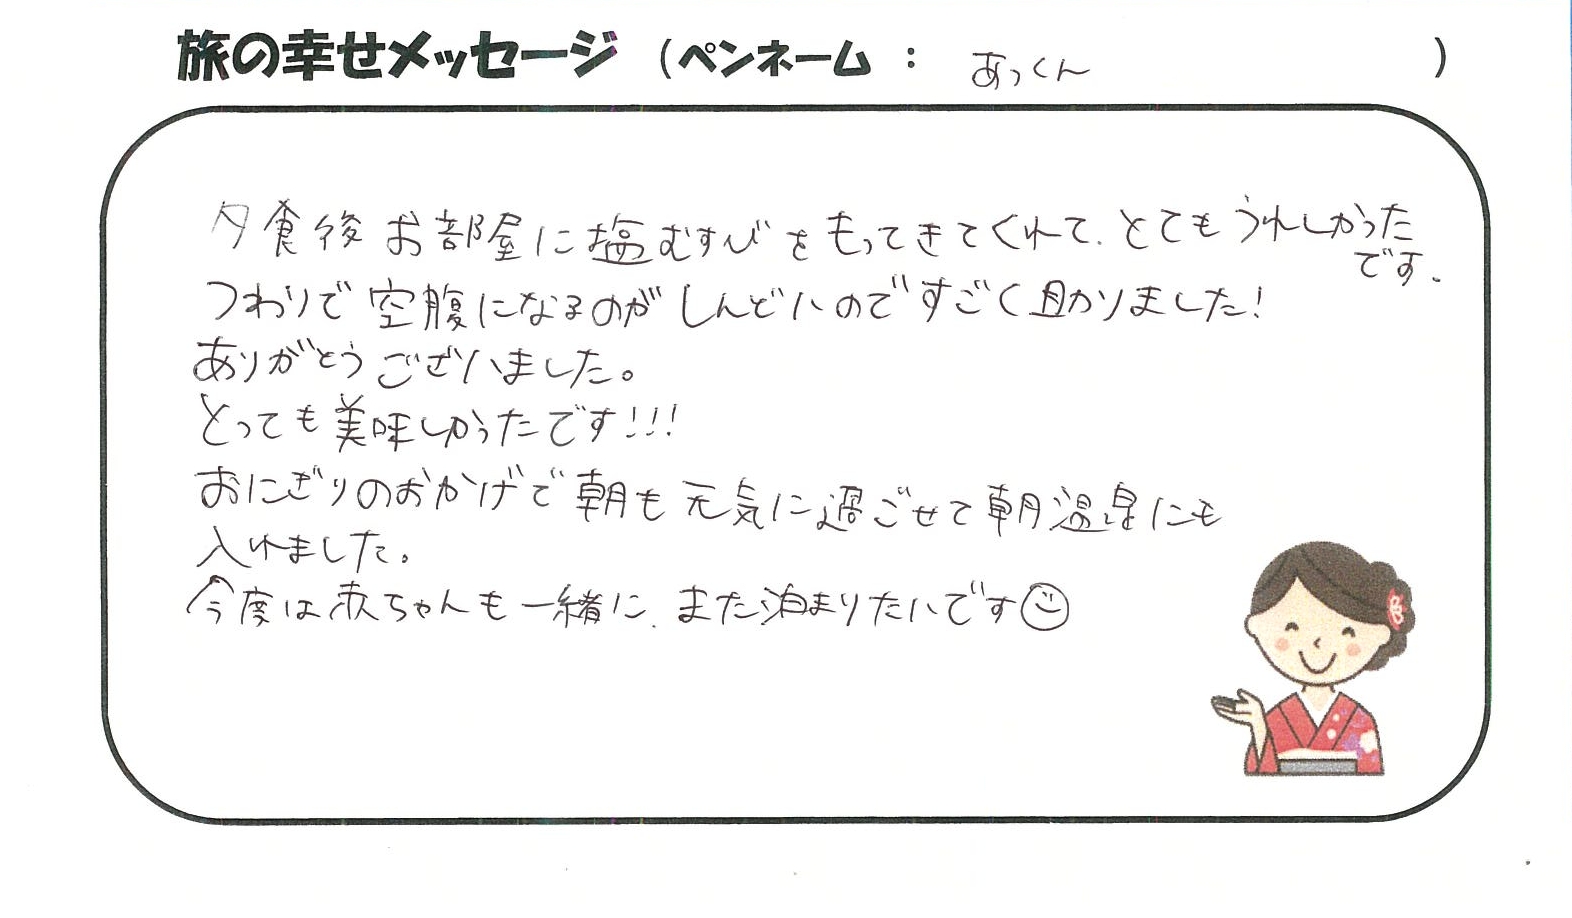 旅の幸せメッセージ (ペンネーム : あっくん )
夕食後お部屋に塩むすびをもってきてくれて、とてもうれしかった
です。
つわりで空腹になるのがしんどいのですごく助かりました!
ありがとうございました。
とっても美味しかったです!!!
おにぎりのおかげで朝も元気に過ごせて朝温泉にも
入れました。
今度は赤ちゃんも一緒に、また泊まりたいです☺